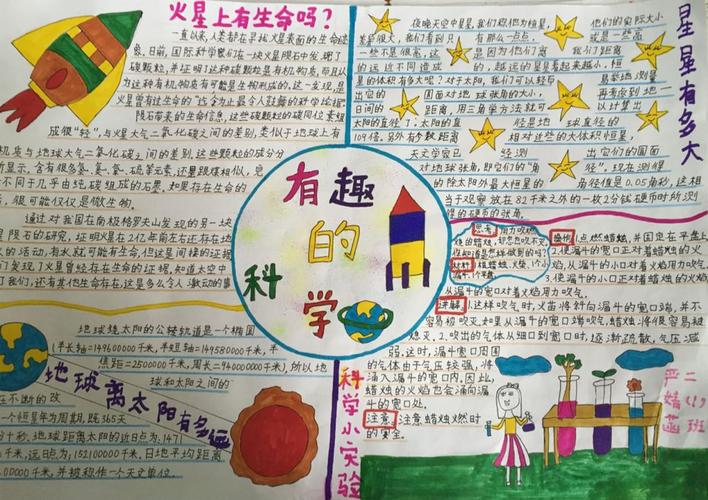 火星上有生命吗?
一直以来,人类都在寻找火星表面的生命迹
象,日前,国际科学家们在一块火星陨石中发现了
碳颗粒,并证明了这种碳颗粒是有机物质,而且认
为这种有机物质有可能是生物形成的。这一发现,是
火星曾有过生命的
陨石带来的生命信息,这些碳颗粒的碳同位素组
成很“轻”,与火星大气二氧化碳之间的差别,类似于地球上有
机质与地球大气二氧化碳之间的差别。这些颗粒的成分分
不同于几乎由纯碳组成的石墨,如果存在生命的
,很可能仅仅是微生物。
通过对我国在南极格罗夫山发现的另一块
陨石的研究,证明火星在2亿年前左右还存在地
的活动,有水就可能有生命,但这是间接的证据
们发现了火星曾经存在生命的证据,知道太空中
我们,还有其他生命存在,这是多么令人激动的事
星星有多大
夜晚天空中星星,我们称他为恒星,他们的实际大小
差异很大,我们看到只有那么一点点,或是一些高
一些不是很高,这是因为他们离我们距离
的远近不同造成的,越远的星星看起来越小,恒
星的体积有多大呢?对于太阳,我们可以轻
出它的圆面对地球张角的大小,再考虑到地一
日间的距离,用三角学方法就可以计算出
太阳的直径了:太阳的直径是地球直径的
109倍,另外有参数距离相对过近的大体积恒星,
天文学家已经测出它们的圆面
对地球张角,即它们的“角径”,现在测得
的除太阳外最大恒星的角径值是0.05角秒,这相
当于观察放在82千米之外的一枚2分钱硬币时所测
得的硬币的张角。
有趣的科学
思考:用力吹燃
烧的蜡烛,却怎也吹不灭
你知道是怎样做到的吗?
材料:1根蜡烛、火柴、1个小
漏斗、1个平盘
操作:1.点燃蜡烛,并固定在平盘上
2.使漏斗的宽口正对着蜡烛的火
焰,从漏斗的小口对着火焰用力吹气。
从漏斗的宽口对着火焰用力吹气。
讲解:1.这样吹气时,火苗将斜向漏斗的宽口端,并不
容易被吹灭。如果从漏斗的宽口端吹气,蜡烛将很容易被
熄灭。2.吹出的气体从细口到宽口时,逐渐疏散,气压减
弱。这时,漏斗宽口周围
的气体由于气压较强,将
涌入漏斗的宽口内,因此,
蜡烛的火焰也会涌向漏
斗的宽口处。
注意:注意蜡烛燃烧时
的安全。
科学小实验
二(1)班
地球绕太阳的公转轨道是一个椭圆
(半长轴=149600000千米,半短轴=149580000千米,半
焦距=2500000千米,周长=940000000千米),所以地
球和太阳之间的
地球离太阳有多远
在不断的改
一个恒星年为周期,既365天
十秒,地球距离太阳的近日点为:1471
千米,远日点为,152100000千米,日地平均距离
00000千米,并被称作一个天文单位。